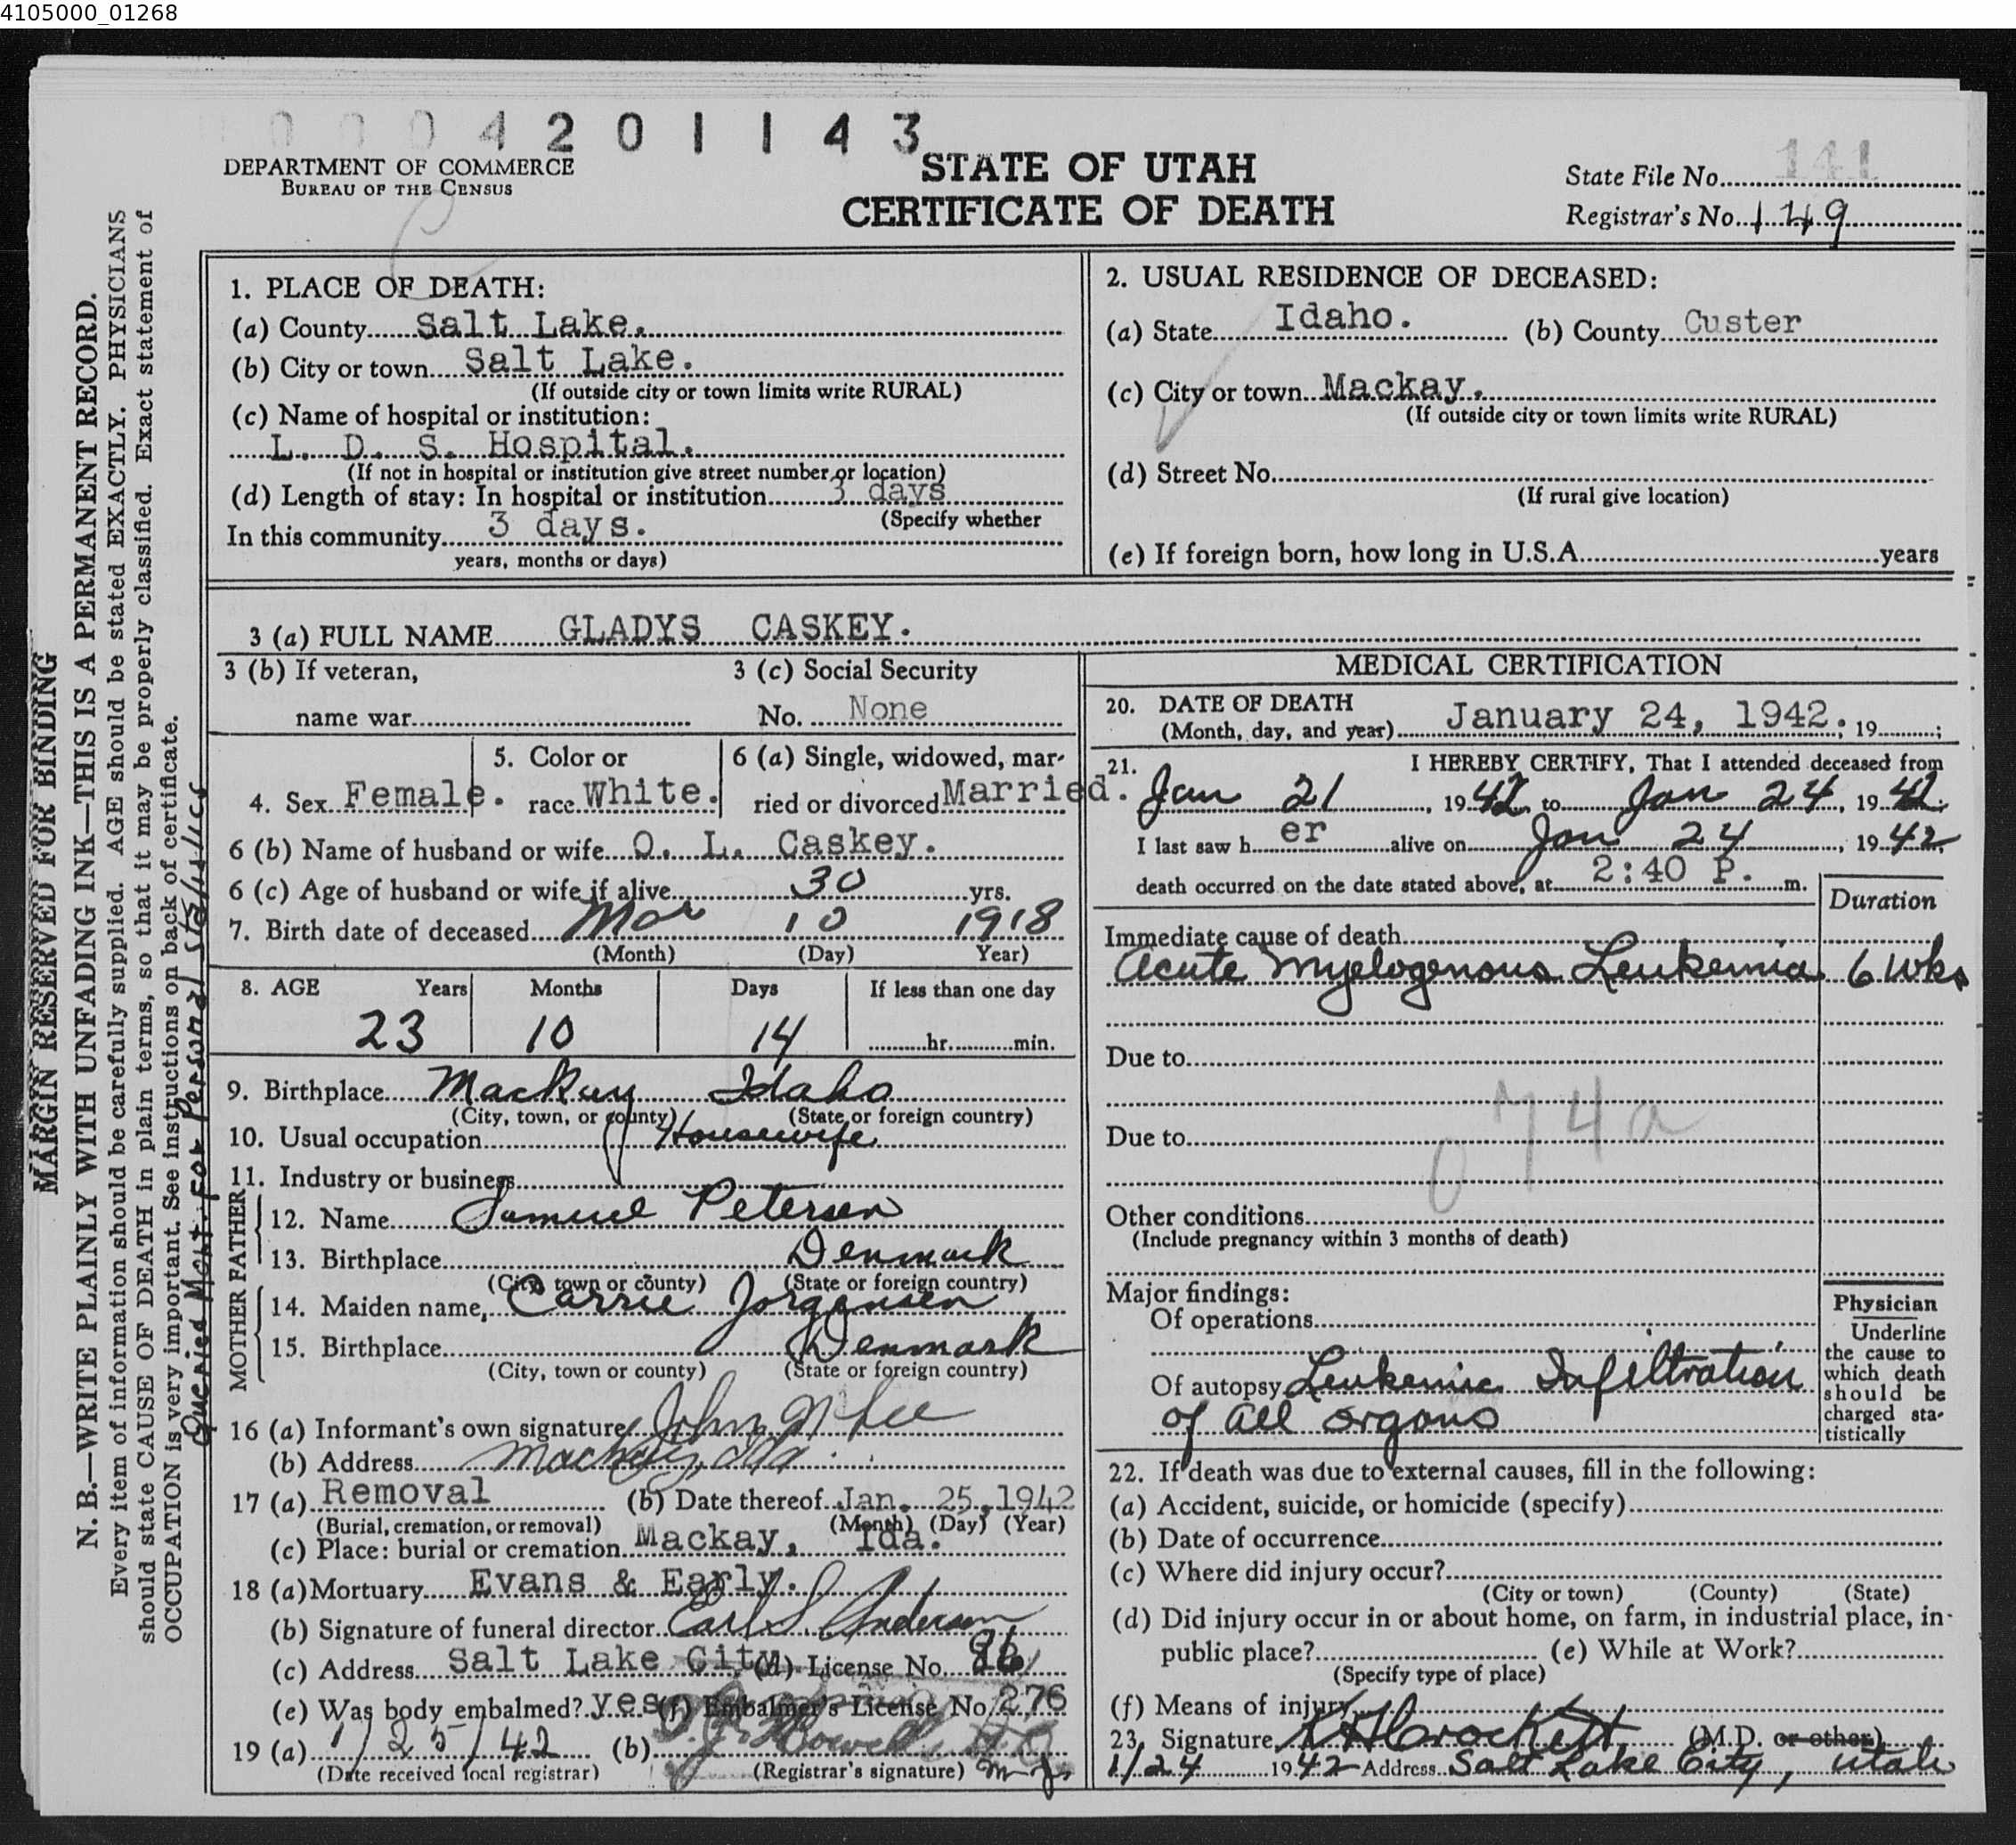 4105000_01268
0004201143
DEPARTMENT OF COMMERCE
BUREAU OF THE CENSUS
STATE OF UTAH
CERTIFICATE OF DEATH
State File No. 141
Registrar's No. 149
MARGIN RESERVED FOR BINDING
N. B.—WRITE PLAINLY WITH UNFADING INK—THIS IS A PERMANENT RECORD.
Every item of information should be carefully supplied. AGE should be stated EXACTLY. PHYSICIANS
should state CAUSE OF DEATH in plain terms, so that it may be properly classified. Exact statement of
OCCUPATION is very important. See instructions on back of certificate.
Queried Mort. For Personal Statistics
1. PLACE OF DEATH:
(a) County Salt Lake.
(b) City or town Salt Lake.
(If outside city or town limits write RURAL)
(c) Name of hospital or institution:
L. D. S. Hospital.
(If not in hospital or institution give street number or location)
(d) Length of stay: In hospital or institution 3 days
(Specify whether
In this community 3 days.
years, months or days)
2. USUAL RESIDENCE OF DECEASED:
(a) State Idaho. (b) County Custer
(c) City or town Mackay.
(If outside city or town limits write RURAL)
(d) Street No.
(If rural give location)
(e) If foreign born, how long in U.S.A. years
3 (a) FULL NAME GLADYS CASKEY.
3 (b) If veteran,
name war
3 (c) Social Security
No. None
4. Sex Female.
5. Color or
race White.
6 (a) Single, widowed, mar-
ried or divorced Married.
6 (b) Name of husband or wife O. L. Caskey.
6 (c) Age of husband or wife if alive 30 yrs.
7. Birth date of deceased Mar 10 1918
(Month) (Day) Year)
8. AGE Years Months Days If less than one day
23 10 14 hr. min.
9. Birthplace Mackay Idaho
(City, town, or county) (State or foreign country)
10. Usual occupation Housewife
11. Industry or business
FATHER
12. Name Samuel Petersen
13. Birthplace Denmark
(City, town or county) (State or foreign country)
MOTHER
14. Maiden name, Carrie Jorgensen
15. Birthplace Denmark
(City, town or county) (State or foreign country)
16 (a) Informant's own signature John Lee
(b) Address Mackay, Ida.
17 (a) Removal (b) Date thereof Jan. 25, 1942
(Burial, cremation, or removal) (Month) (Day) (Year)
(c) Place: burial or cremation Mackay, Ida.
18 (a) Mortuary Evans & Early.
(b) Signature of funeral director Earl S. Anderson
(c) Address Salt Lake City. (d) License No.
(e) Was body embalmed? yes (f) Embalmer's License No. 276
19 (a) 1/25/42 (b)
(Date received local registrar) (Registrar's signature)
MEDICAL CERTIFICATION
20. DATE OF DEATH
(Month, day, and year) January 24, 1942. ; 19 ;
21. I HEREBY CERTIFY, That I attended deceased from
Jan 21, 1942, to Jan 24, 1942;
I last saw her alive on Jan 24, 1942;
death occurred on the date stated above, at 2:40 P. m.
Duration
Immediate cause of death
Acute Myelogenous Leukemia 6 wks
Due to
Due to
074a
Other conditions
(Include pregnancy within 3 months of death)
Major findings:
Of operations
Of autopsy Leukemic Infiltration
of all organs
Physician
Underline
the cause to
which death
should be
charged sta-
tistically
22. If death was due to external causes, fill in the following:
(a) Accident, suicide, or homicide (specify)
(b) Date of occurrence
(c) Where did injury occur?
(City or town) (County) (State)
(d) Did injury occur in or about home, on farm, in industrial place, in
public place? (e) While at Work?
(Specify type of place)
(f) Means of injury
23. Signature Crockett (M.D. or other)
1/24 1942 Address Salt Lake City, Utah